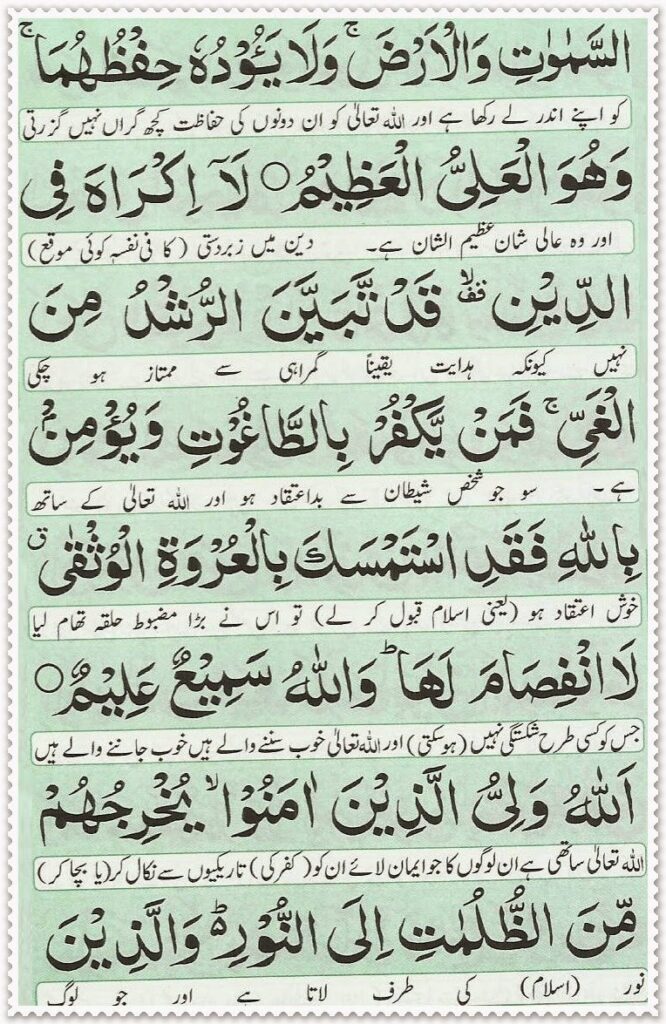 السَّمٰوٰتِ وَالْاَرْضَ ۚ وَلَا يَـُٔوْدُهٗ حِفْظُهُمَا ۚ
کو اپنے اندر لے رکھا ہے اور اللہ تعالیٰ کو ان دونوں کی حفاظت کچھ گراں نہیں گزرتی
وَهُوَ الْعَلِىُّ الْعَظِيْمُ ○ لَاۤ اِكْرَاهَ فِى
اور وہ عالی شان عظیم الشان ہے۔ دین میں زبردستی (کا فی نفسہ کوئی موقع)
الدِّيْنِ ۙ قف قَدْ تَّبَيَّنَ الرُّشْدُ مِنَ
نہیں کیونکہ ہدایت یقیناً گمراہی سے ممتاز ہو چکی
الْغَىِّ ۚ فَمَنْ يَّكْفُرْ بِالطَّاغُوْتِ وَيُؤْمِنْۢ
ہے۔ سو جو شخص شیطان سے بداعتقاد ہو اور اللہ تعالیٰ کے ساتھ
بِاللّٰهِ فَقَدِ اسْتَمْسَكَ بِالْعُرْوَةِ الْوُثْقٰى ق
خوش اعتقاد ہو (یعنی اسلام قبول کر لے) تو اس نے بڑا مضبوط حلقہ تھام لیا
لَا انْفِصَامَ لَهَا ؕ وَاللّٰهُ سَمِيْعٌ عَلِيْمٌ ○
جس کو کسی طرح شکستگی نہیں (ہو سکتی) اور اللہ تعالیٰ خوب سننے والے ہیں خوب جاننے والے ہیں
اَللّٰهُ وَلِىُّ الَّذِيْنَ اٰمَنُوْا ۙ يُخْرِجُهُمْ
اللہ تعالیٰ ساتھی ہے ان لوگوں کا جو ایمان لائے ان کو (کفر کی) تاریکیوں سے نکال کر (یا بچا کر)
مِّنَ الظُّلُمٰتِ اِلَى النُّوْرِ ؕ وَالَّذِيْنَ
نور (اسلام) کی طرف لاتا ہے اور جو لوگ